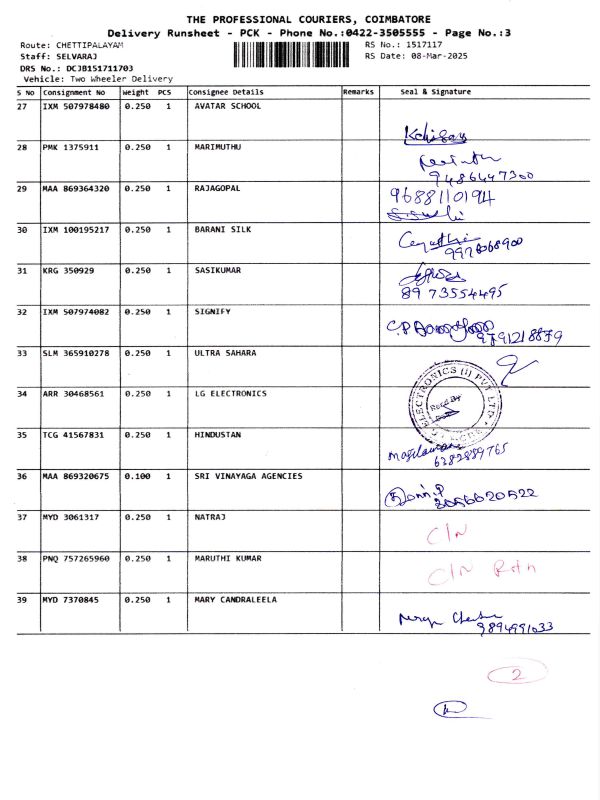 THE PROFESSIONAL COURIERS, COIMBATORE
Delivery Runsheet - PCK - Phone No.:0422-3505555 - Page No.:3
Route: CHETTIPALAYAM RS No.: 1517117
Staff: SELVARAJ RS Date: 08-Mar-2025
DRS No.: DCJB151711703
Vehicle: Two Wheeler Delivery
S No Consignment No Weight PCS Consignee Details Remarks Seal & Signature
27 IXM 507978480 0.250 1 AVATAR SCHOOL
28 PMK 1375911 0.250 1 MARIMUTHU
9486447300
29 MAA 869364320 0.250 1 RAJAGOPAL 9688110194
30 IXM 100195217 0.250 1 BARANI SILK
9978068900
31 KRG 350929 0.250 1 SASIKUMAR
8973554495
32 IXM 507974082 0.250 1 SIGNIFY
9791218879
33 SLM 365910278 0.250 1 ULTRA SAHARA
34 ARR 30468561 0.250 1 LG ELECTRONICS
ELECTRONICS (I) PVT LTD
35 TCG 41567831 0.250 1 HINDUSTAN
6382889765
36 MAA 869320675 0.100 1 SRI VINAYAGA AGENCIES
37 MYD 3061317 0.250 1 NATRAJ C/N
38 PNQ 757265960 0.250 1 MARUTHI KUMAR C/N Rtn
39 MYD 7370845 0.250 1 MARY CANDRALEELA
9894991033
2